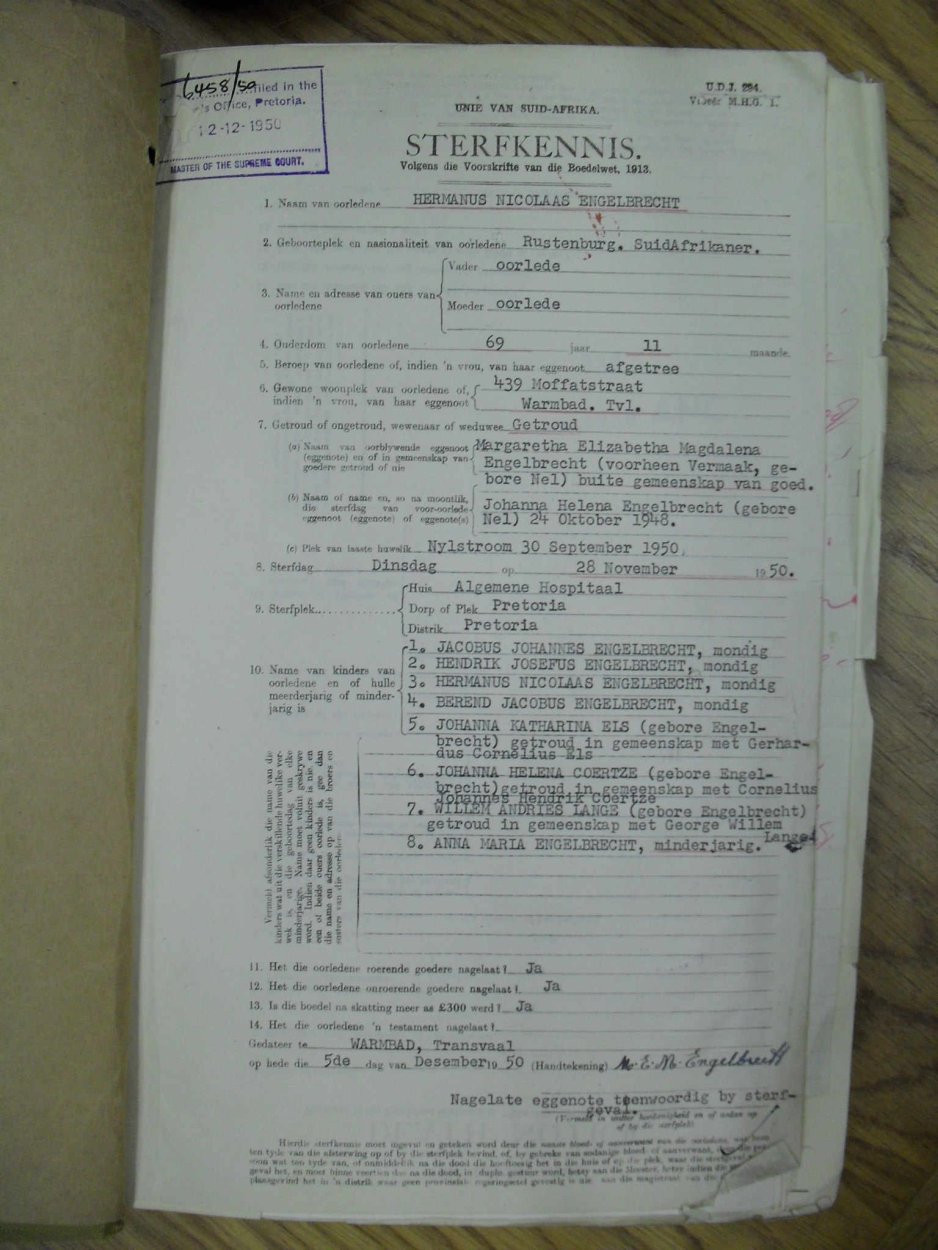 6458/50
filed in the
's Office, Pretoria.
12-12-1950
MASTER OF THE SUPREME COURT.
U.D.J. 294.
M.H.G. 1.
UNIE VAN SUID-AFRIKA.
STERFKENNIS.
Volgens die Voorskrifte van die Boedelwet, 1913.
1. Naam van oorledene HERMANUS NICOLAAS ENGELBRECHT
2. Geboorteplek en nasionaliteit van oorledene Rustenburg. SuidAfrikaner.
3. Name en adresse van ouers van oorledene
Vader oorlede
Moeder oorlede
4. Ouderdom van oorledene 69 jaar 11 maande.
5. Beroep van oorledene of, indien 'n vrou, van haar eggenoot afgetree
6. Gewone woonplek van oorledene of, 439 Moffatstraat
indien 'n vrou, van haar eggenoot Warmbad. Tvl.
7. Getroud of ongetroud, wewenaar of weduwee Getroud
(a) Naam van oorblywende eggenoot Margaretha Elizabetha Magdalena
(eggenote) en of in gemeenskap van Engelbrecht (voorheen Vermaak, ge-
goedere getroud of nie bore Nel) buite gemeenskap van goed.
(b) Naam of name en, so na moontlik,
die sterfdag van voor-oorlede Johanna Helena Engelbrecht (gebore
eggenoot (eggenote) of eggenote(s) Nel) 24 Oktober 1948.
(c) Plek van laaste huwelik Nylstroom 30 September 1950.
8. Sterfdag Dinsdag op 28 November 1950.
9. Sterfplek
Huis Algemene Hospitaal
Dorp of Plek Pretoria
Distrik Pretoria
10. Name van kinders van
oorledene en of hulle
meerderjarig of minder-
jarig is
1. JACOBUS JOHANNES ENGELBRECHT, mondig
2. HENDRIK JOSEFUS ENGELBRECHT, mondig
3. HERMANUS NICOLAAS ENGELBRECHT, mondig
4. BEREND JACOBUS ENGELBRECHT, mondig
5. JOHANNA KATHARINA ELS (gebore Engel-
brecht) getroud in gemeenskap met Gerhar-
dus Cornelius Els
6. JOHANNA HELENA COERTZE (gebore Engel-
brecht)getroud in gemeenskap met Cornelius
Johannes Hendrik Coertze
7. WILLEM ANDRIES LANGE (gebore Engelbrecht)
getroud in gemeenskap met George Willem
Lange
8. ANNA MARIA ENGELBRECHT, minderjarig.
Vermeld afsonderlik die name van die
kinders wat uit die verskillende huwelike ver-
wek is, en die geboortedag van elke
minderjarige. Name moet voluit geskrywe
word. Indien daar geen kinders is nie en
een of beide ouers oorlede is, gee dan
die name en adresse op van die broers en
susters van die oorledene.
11. Het die oorledene roerende goedere nagelaat? Ja
12. Het die oorledene onroerende goedere nagelaat? Ja
13. Is die boedel na skatting meer as £300 werd? Ja
14. Het die oorledene 'n testament nagelaat?
Gedateer te WARMBAD, Transvaal
op hede die 5de dag van Desember 1950 (Handtekening) M. E. M. Engelbrecht
Nagelate eggenote teenwoordig by sterf-
geval.
of by die sterfplek)
Hierdie sterfkennis moet ingevul en geteken word deur die naaste bloed- of aanverwant van die oorledene, wat
ten tyde van die afsterwing op of by die sterfplek bevind, of, by gebreke van sodanige bloed- of aanverwant,
soon wat ten tyde van, of onmiddellik na die dood die hooftoesig het in die huis of op die plek, waar die
geval het, en moet binne veertien dae na die dood, in duplo, gestuur word, hetsy aan die Meester, hetsy indien die
plaasgevind het in 'n distrik waar geen provinsiale regeringsetel gevestig is nie aan die magistraat van die